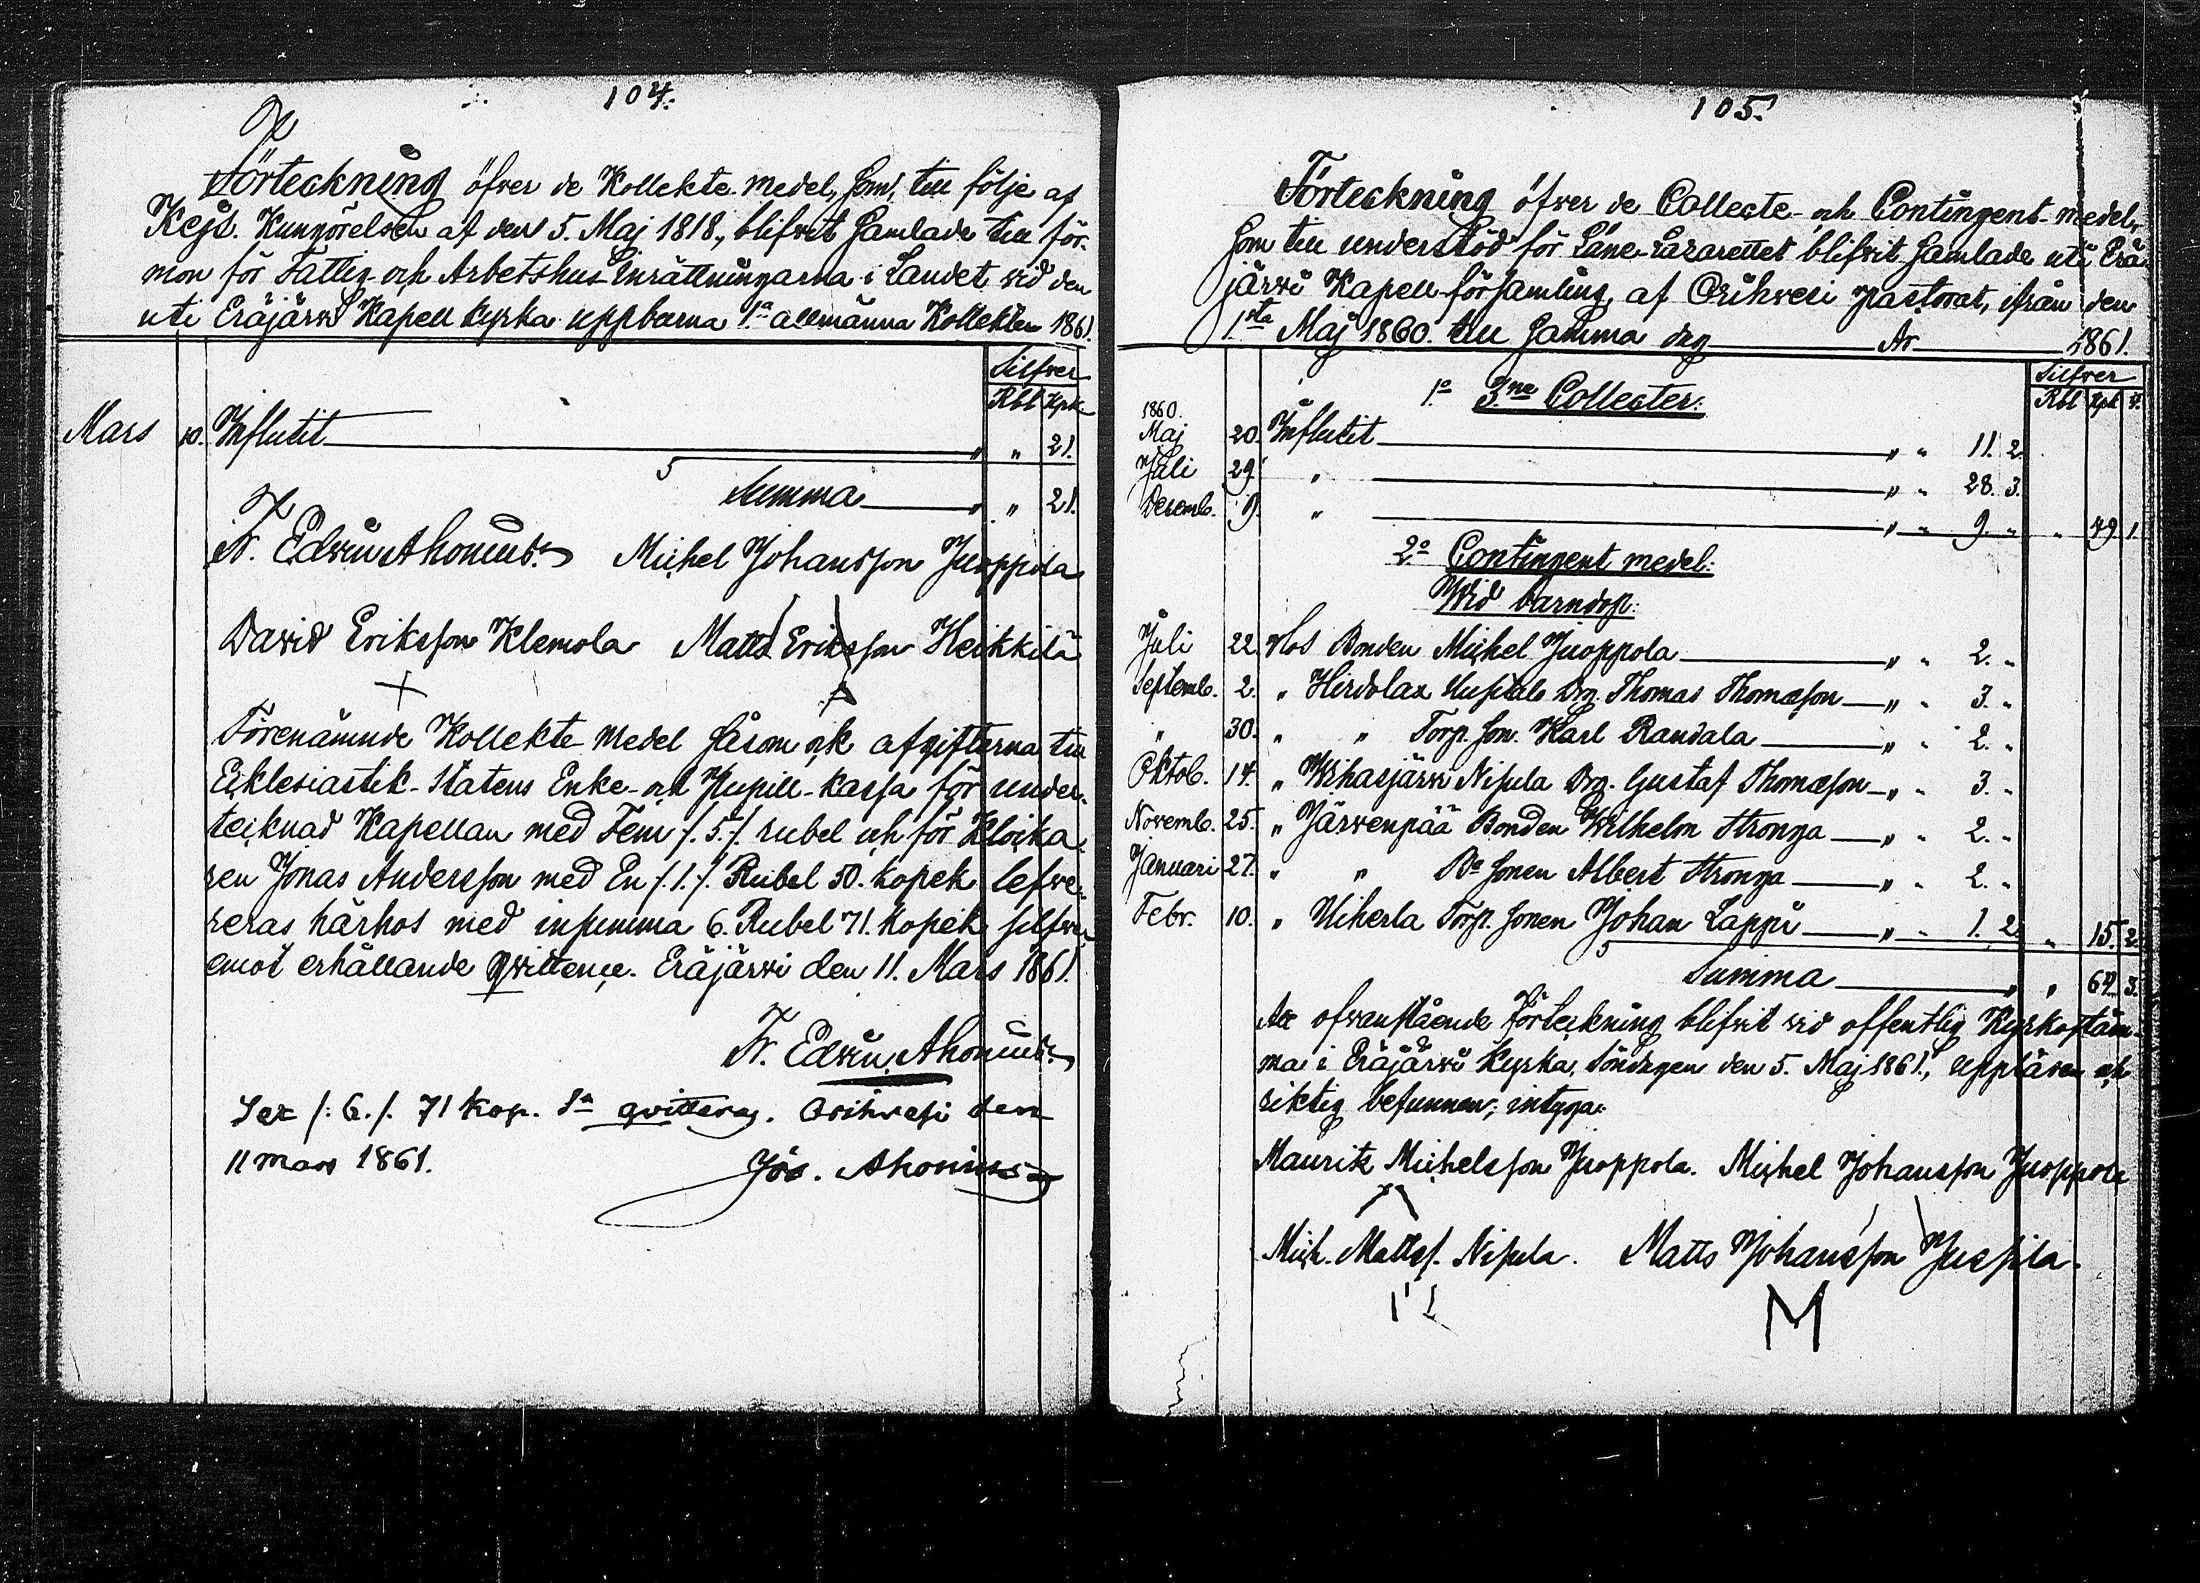 104.
Förteckning öfver de Kollekte medel, som, till följe af
Kejs. Kungörelsen af den 5. Maj 1818., blifvit samlade till för-
mon för Fattig- och Arbetshus Inrättningarna i Landet vid den
uti Eräjärvi Kapell kyrka uppburna 1.a allmänna Kollekten 1861.
Silfver
Rbl Kpk.
Mars 10. Influtit " " 21.
Summa " " 21.
Fr. Edvin Ahonius. Michel Johansson Juoppola
David Eriksson Klemola Matts Eriksson Heikkilä
Förenämnde Kollekte medel såsom ock afgifterna till
Ecklesiastik-Statens Enke- och Pupill-kassa för under-
tecknad Kapellan med Fem /. 5 ./. rubel och för Klocka-
ren Jonas Andersson med En /. 1 ./. Rubel 50. kopek lefve-
reras härhos med insumma 6. Rubel 71. kopek silfver
emot erhållande qvittence. Eräjärvi den 11. Mars 1861.
Fr. Edvin Ahonius.
Sex /: 6. /. 71 kop. Sa qvitteras. Orihvesi den
11 Mars 1861. Jos. Ahonius
105.
Förteckning öfver de Collecte- och Contingent-medel,
som till understöd för Läne-Lazarettet blifvit samlade uti Erä-
järvi Kapell-församling, af Orihvesi pastorat, ifrån den
1.sta Maj 1860. till samma dag År 1861.
Silfver
Rbl Kpk 4.
1.o 3.ne Collecter:
1860.
Maj 20. Influtit " " 11. 2.
Juli 29. " " " 28. 3.
Decemb. 9. " " " 9. " " 49. 1.
2.o Contingent medel:
Wid barndop:
Juli 22. Hos Bonden Michel Juoppola " " 2. "
Septemb. 2. " Hirdolax Uusitalo Drg. Thomas Thomasson " " 3. "
" 30. " " Torp. son. Karl Randala " " 2. "
Oktob. 14. " Wihasjärvi Nipula Drg. Gustaf Thomasson " " 3. "
Novemb. 25. " Järvenpää Bonden Wilhelm Stronga " " 2. "
Januari 27. " " Do sonen Albert Stronga " " 2. "
Febr. 10. " Uiherla Torp. sonen Johan Lappi " " 1. 2. " 15. 2.
Summa " " 64. 3.
Att ofvanstående Förteckning blifvit vid offentlig Kyrkostäm-
ma i Eräjärvi Kyrka, Söndagen den 5. Maj 1861., uppläsen och
riktig befunnen; intyga:
Mauritz Michelsson Juoppola. Michel Johansson Juoppola
Mich. Mattss. Nipula. Matts Johansson Juspila.
M